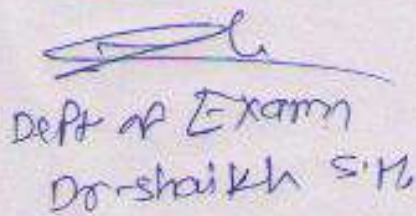 Dept of Exam
Dr-shaikh S.M.